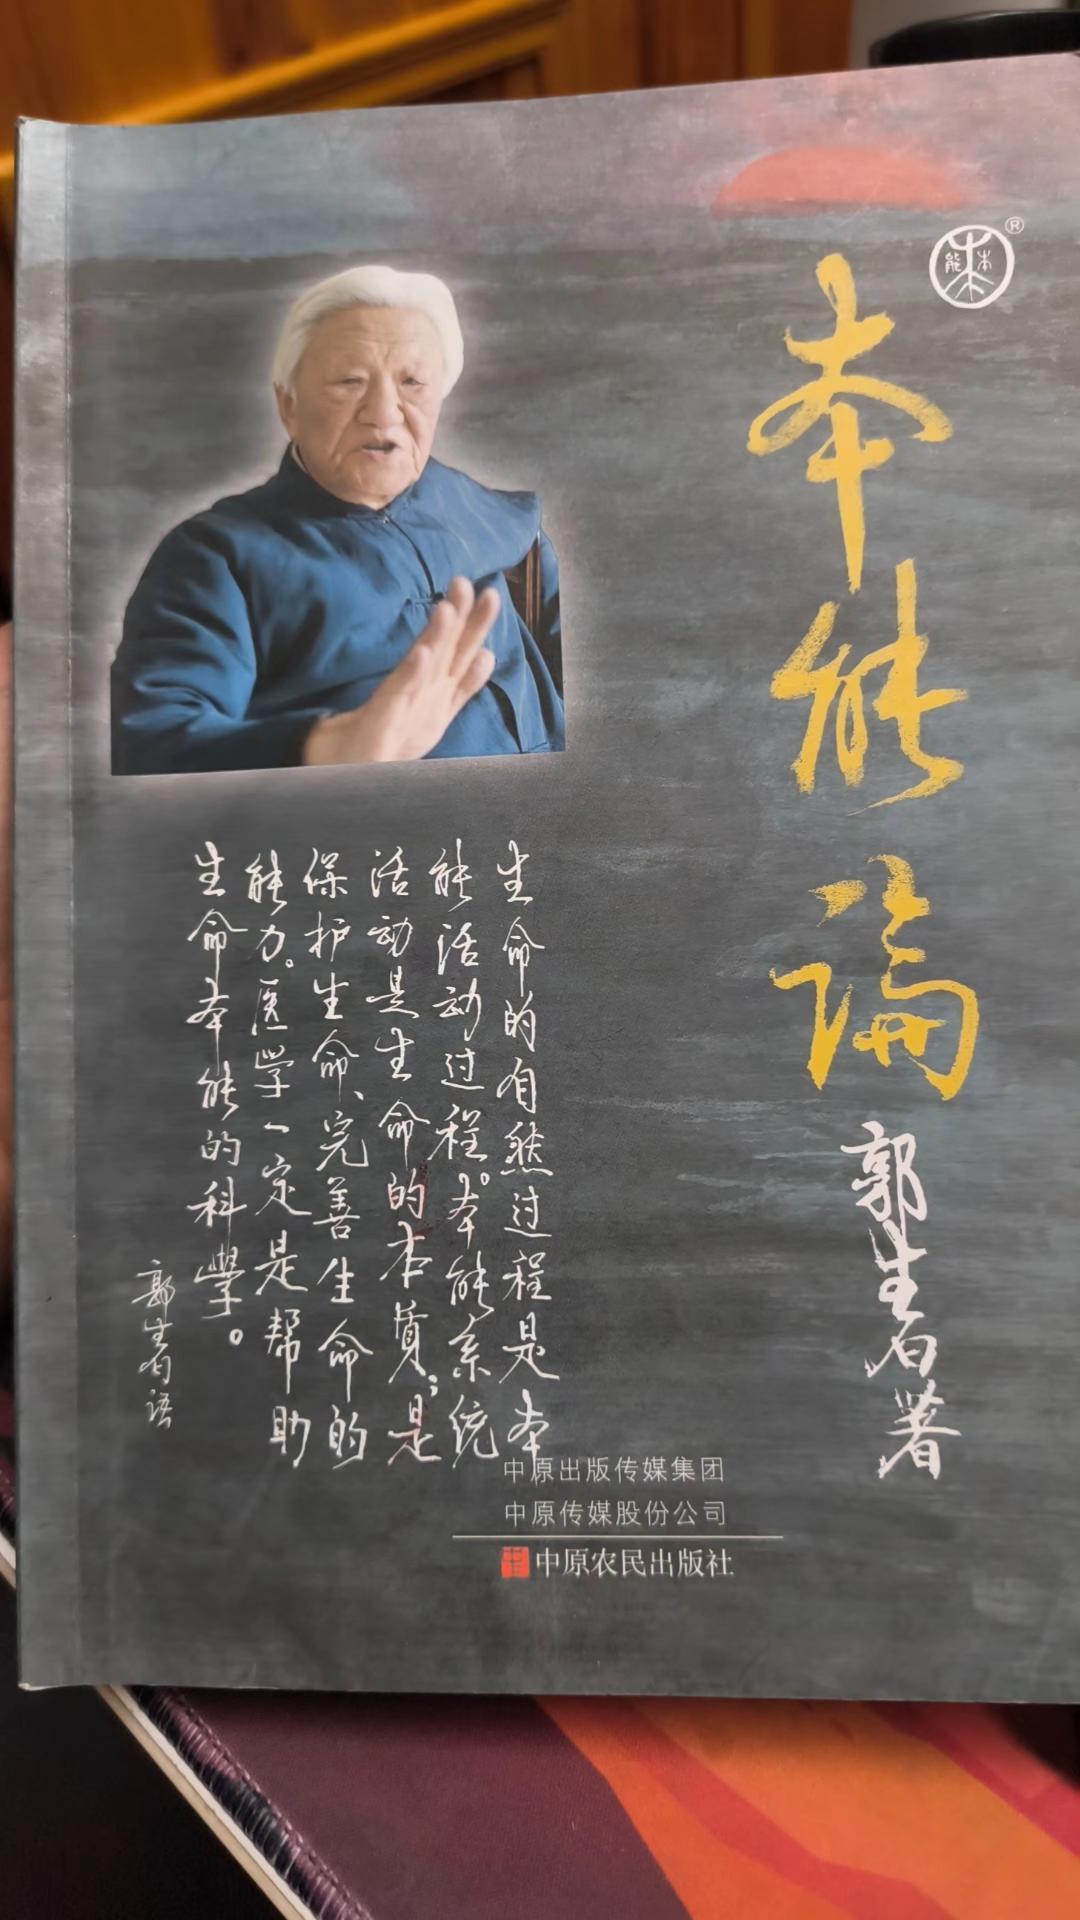 本能
®
本能論
郭生白著
生命的自然过程是本
能活动过程。本能系统
活动是生命的本质；是
保护生命、完善生命的
能力。医学一定是帮助
生命本能的科學。
郭生白语
中原出版传媒集团
中原传媒股份公司
中原农民出版社